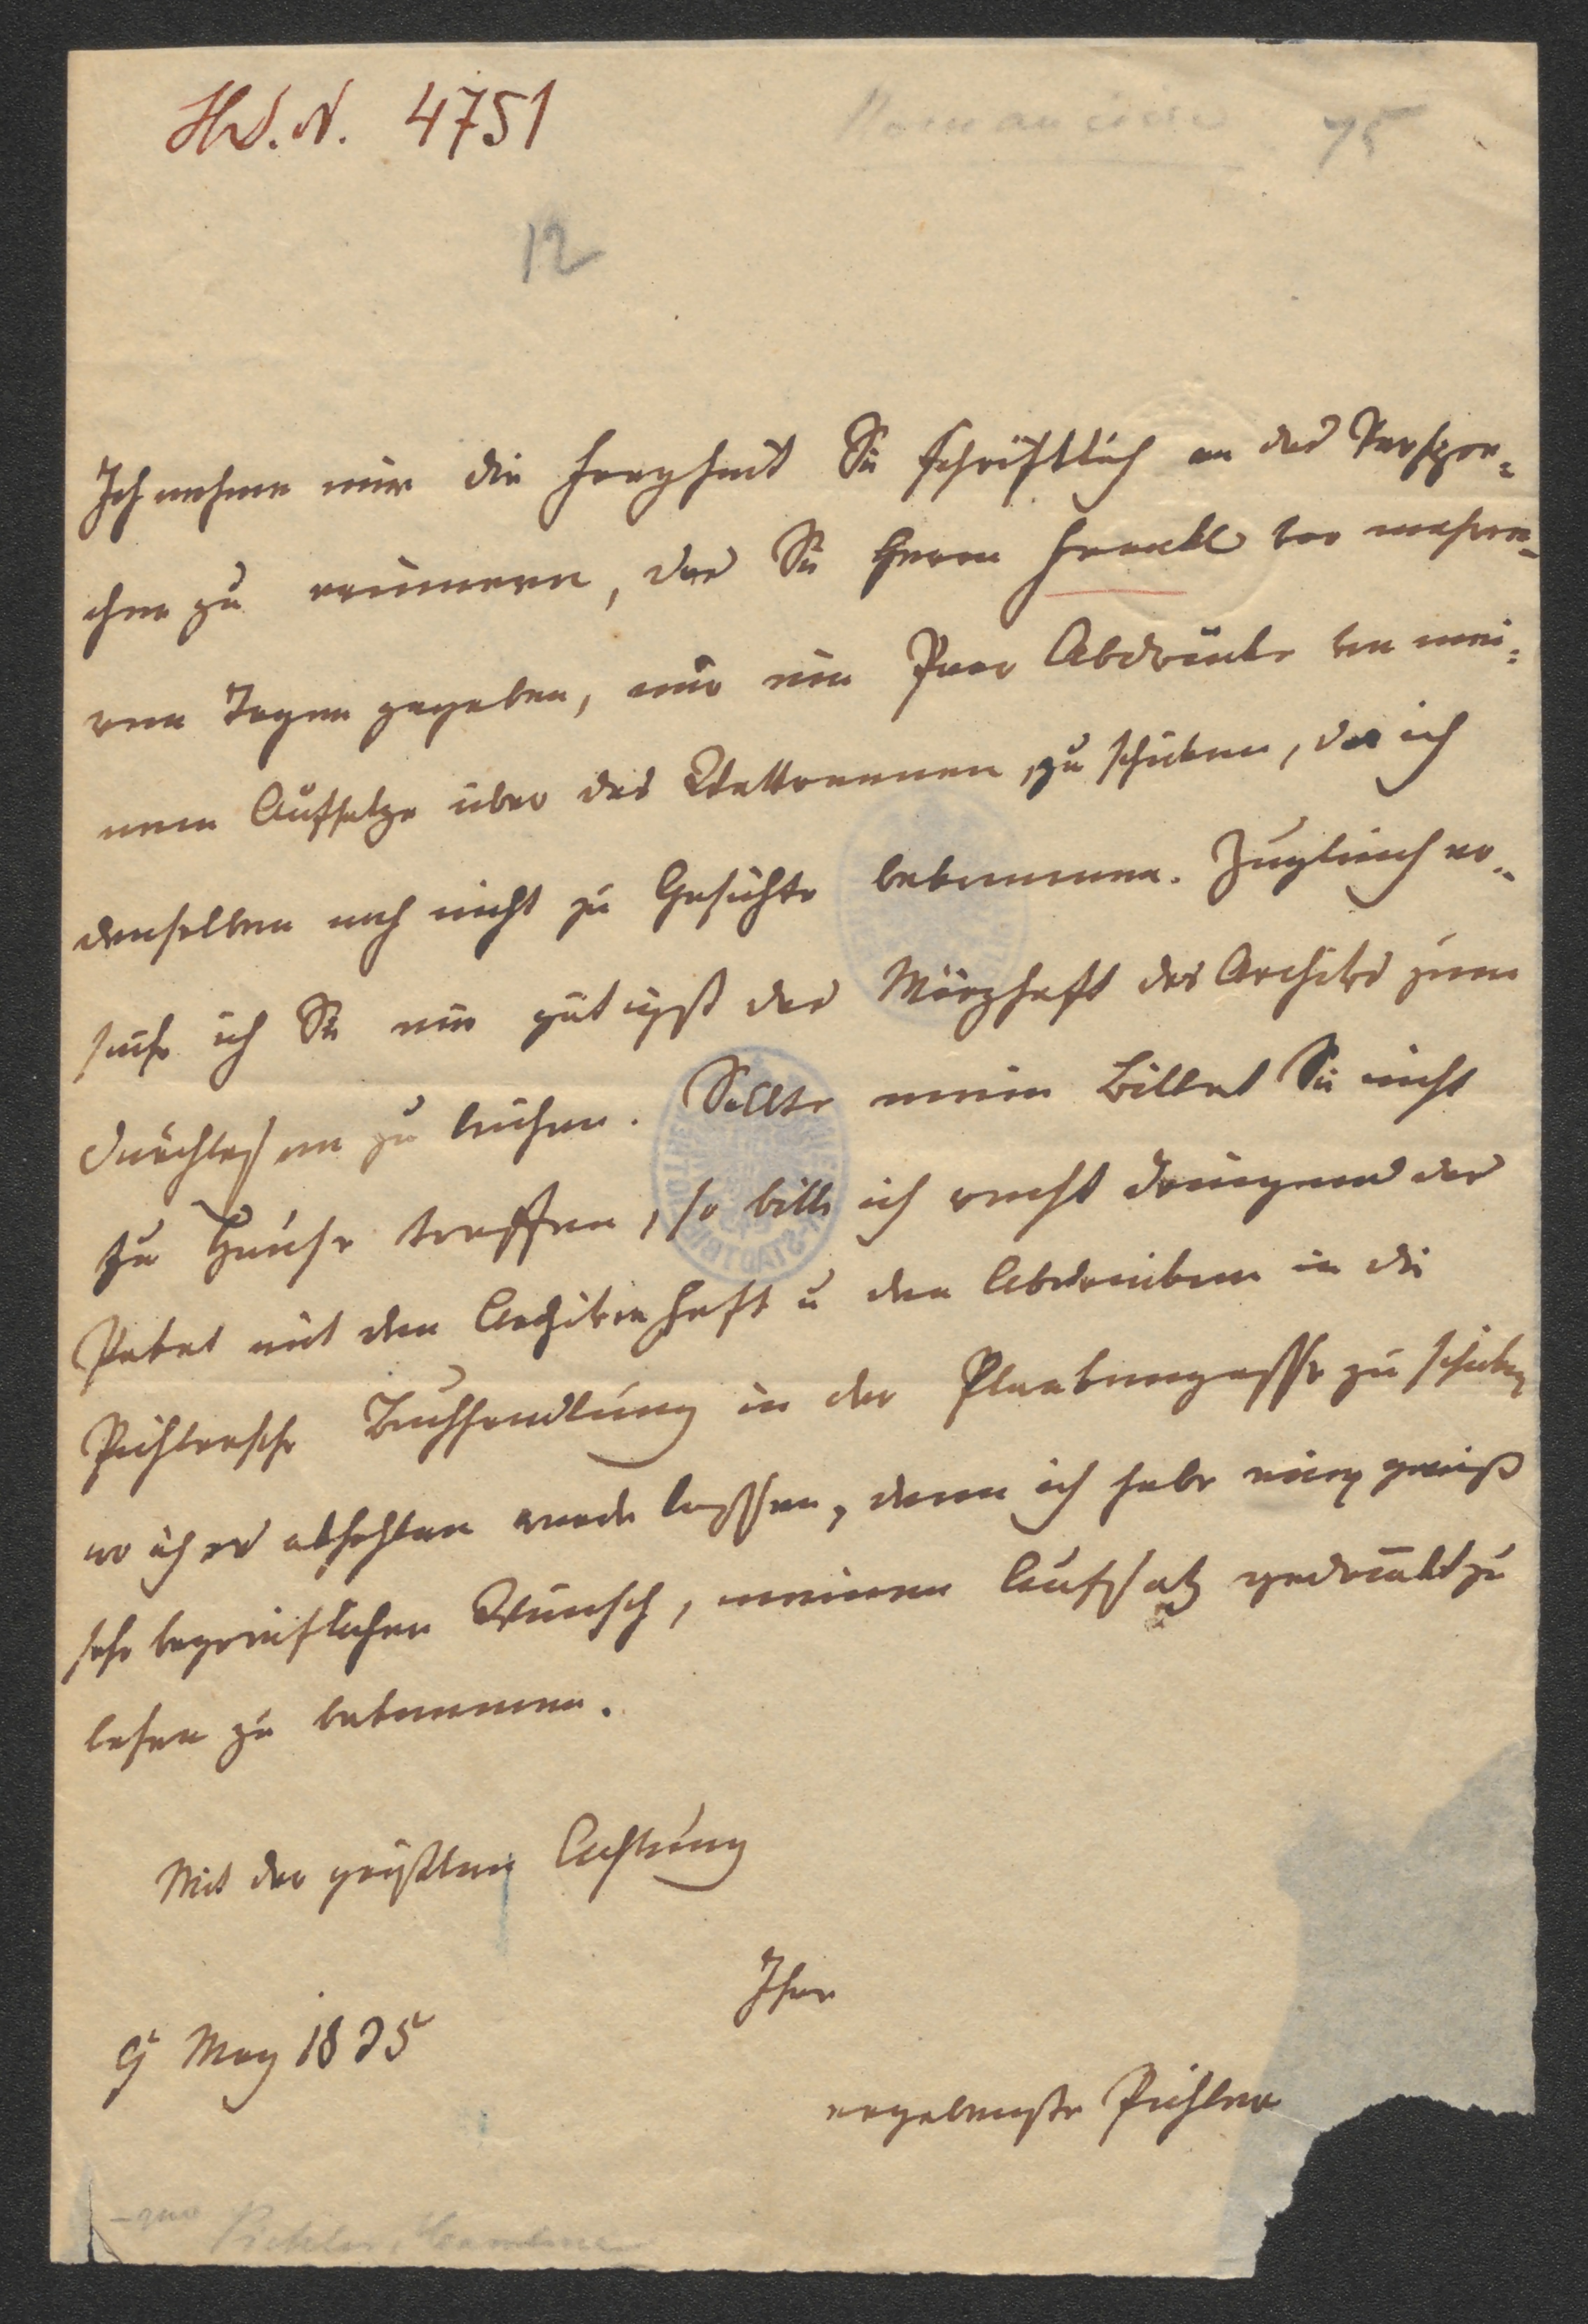 Hd. N. 4751
75
12
Ich nehme mir die Freyheit Sie schriftlich an das Verspre-
chen zu erinnern, das Sie Herrn Frankl vor mehre-
ren Tagen gegeben, mir ein Paar Abdrücke von mei-
nem Aufsatze über das Wettrennen zu schicken, da ich
denselben noch nicht zu Gesichte bekommen. Zugleich er-
suche ich Sie mir gütigst das Märzheft des Archivs zum
Durchlesen zu leihen. Sollte mein Billet Sie nicht
zu Hause treffen, so bitte ich recht dringend das
Paket mit dem Archivenheft u den Abdrücken in die
Pichlersche Buchhandlung in der Plankengasse zu schicken
wo ich es abhohlen werde lassen, denn ich habe einen gewiß
sehr begreiflichen Wunsch, meinen Aufsatz gedruckt zu
lesen zu bekommen.
Mit der größten Achtung
Ihre
9 May 1825
ergebenste Pichler
Pichler, Karoline